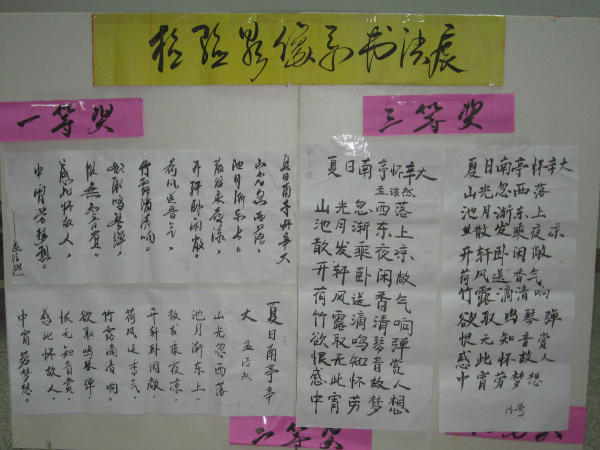 检验影像系书法展
一等奖
三等奖
夏日南亭怀辛大
山光忽西落,
池月渐东上。
散发乘夜凉,
开轩卧闲敞。
荷风送香气,
竹露滴清响。
欲取鸣琴弹,
恨无知音赏。
感此怀故人,
中宵劳梦想。
——孟浩然
夏日南亭怀辛大
孟浩然
山光忽西落
池月渐东上
散发乘夜凉
开轩卧闲敞
荷风送香气
竹露滴清响
欲取鸣琴弹
恨无知音赏
感此怀故人
中宵劳梦想
夏日南亭怀辛大
山光忽西落
池月渐东上
散发乘夜凉
开轩卧闲敞
荷风送香气
竹露滴清响
欲取鸣琴弹
恨无知音赏
感此怀故人
中宵劳梦想
15号
夏日南亭辛
大 孟浩然
山光忽西落
池月渐东上。
散发乘夜凉
开轩卧闲敞
荷风送香气。
竹露滴清响。
欲取鸣琴弹
恨无知音赏
感此怀故人。
中宵劳梦想
二等奖